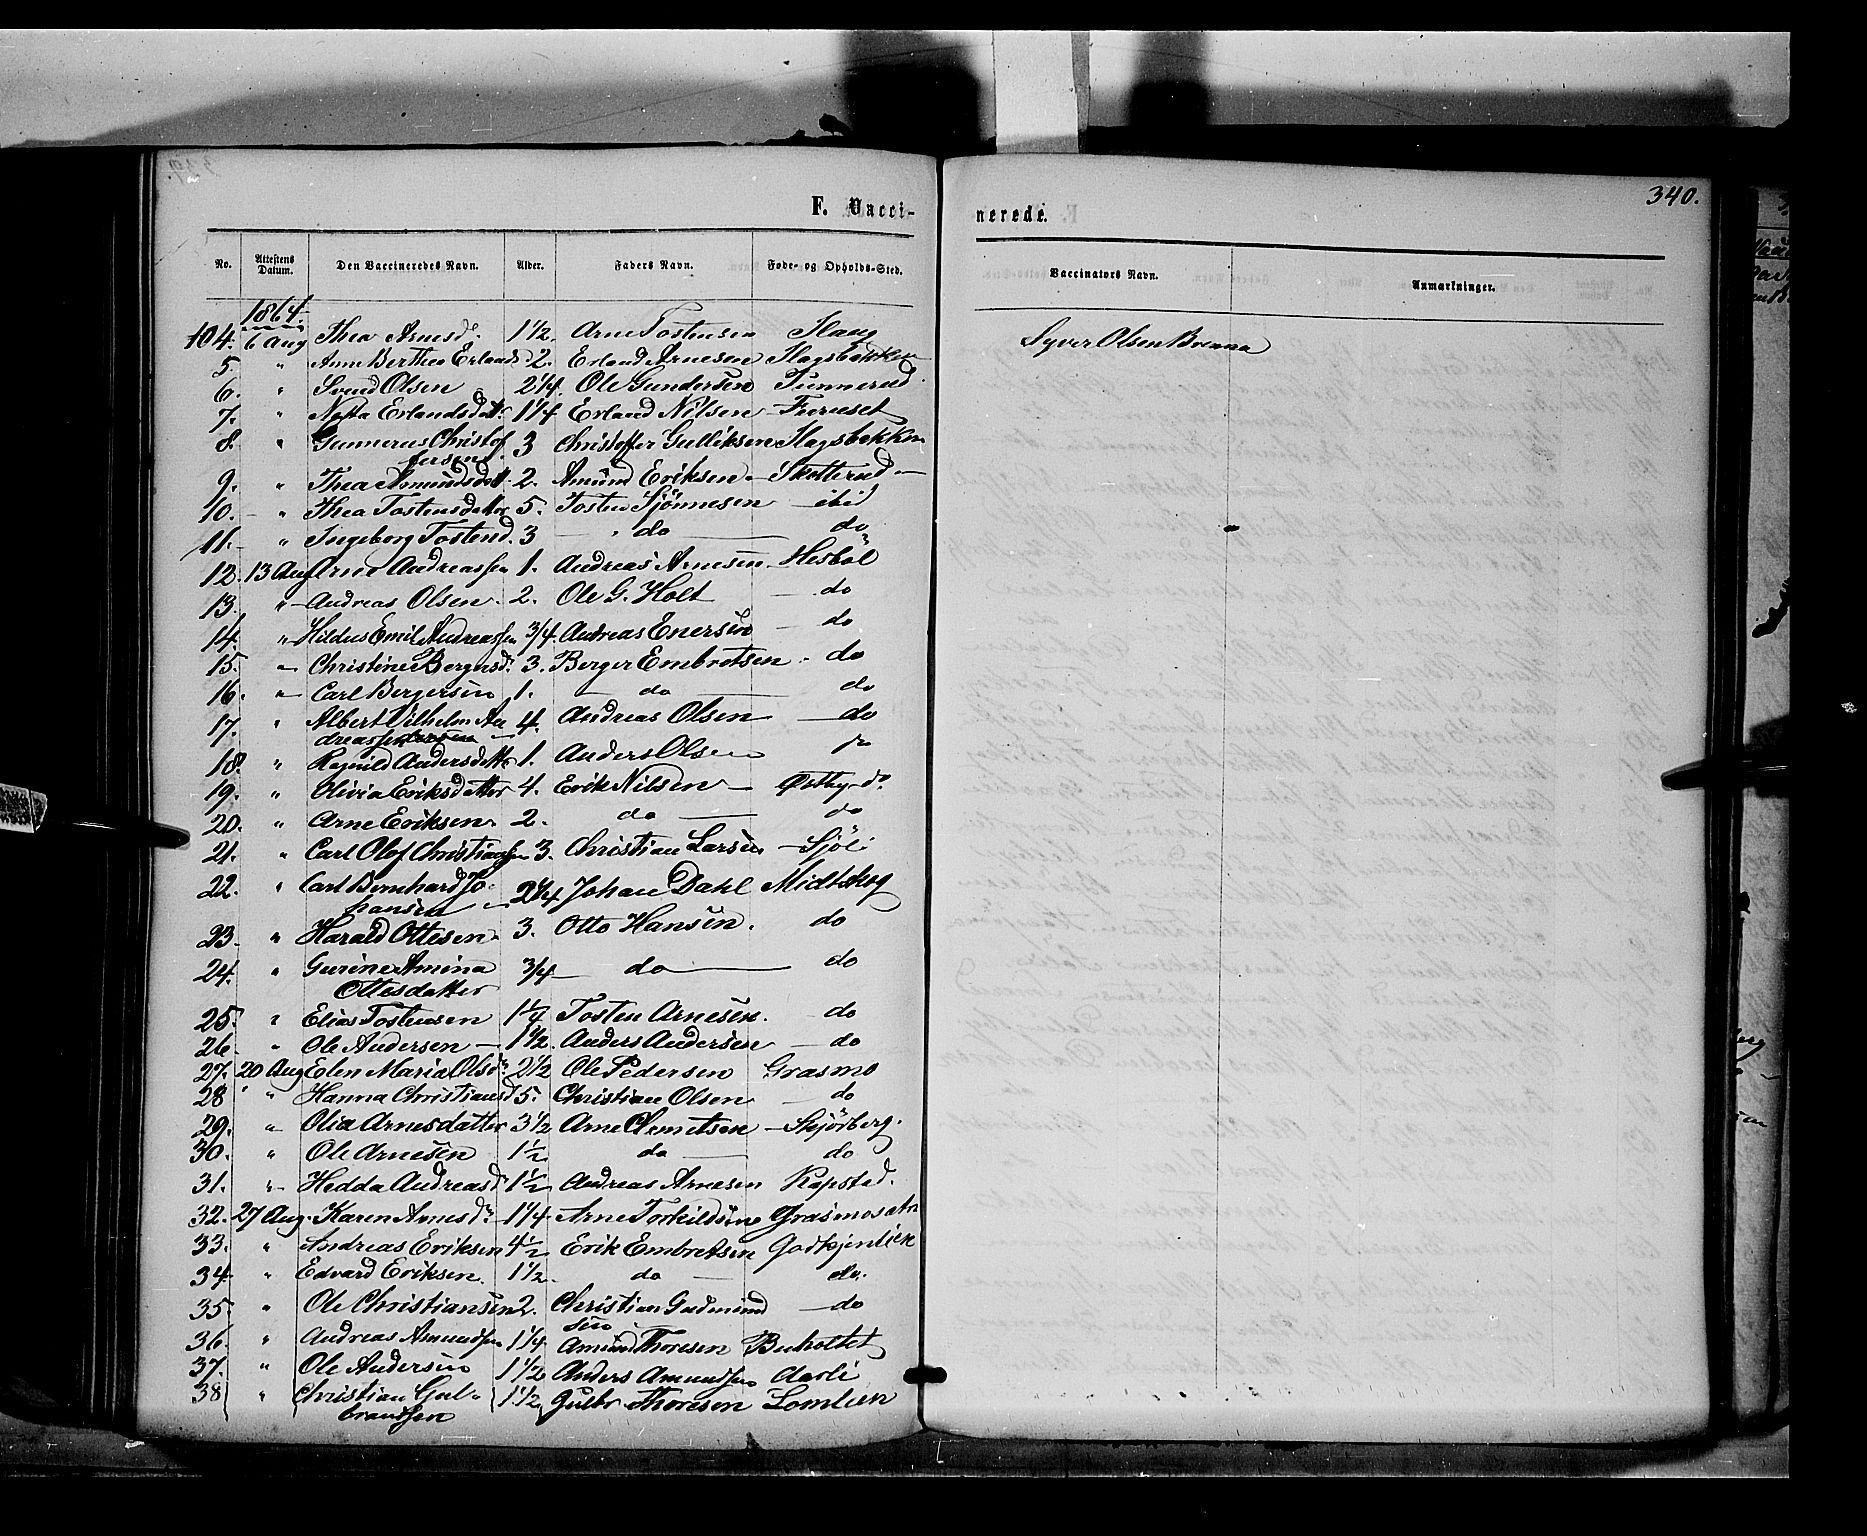 340.
F. Vacci-
nerede.
No. Attestens Datum. Den Vaccineredes Navn. Alder. Faders Navn. Føde- og Opholds-Sted.
Vaccinators Navn. Anmærkninger.
1864
104. 6 Aug Thea Arnesd. 1 1/2. Arne Tostensen Haug
Syver Olsen Brenna
5. " Anne Berthea Erlands 2. Erland Arnesen Hagsbakken
6. " Svend Olsen 2 1/4. Ole Gundersen Tunnerud.
7. " Erlandsdatt. 1 1/4 Erland Nilsen Furuset
8. " Gunnerus Christof
fersen 3 Christoffer Gulliksen Hagsbakken
9. " Thea Amundsdatt. 2. Amund Eriksen Skotterud
10. " Thea Tostensdatter 5. Tosten Sjönnesen ibid
11. " Ingeborg Tostensd. 3 do do
12. 13 Aug Arne Andreassen 1. Andreas Arnesen Hesböl
13. " Andreas Olsen 2. Ole G. Holt do
14. " Hildus Emil Andreassen 3/4. Andreas Enersen do
15. " Christine Bergersd. 3. Berger Embretsen do
16. " Carl Bergersen 1. do do
17. " Albert Vilhelm An
dreassen 4. Andreas Olsen do
18. " Ragnild Andersdatter 1. Anders Olsen do
19. " Olivia Eriksdatter 4. Erik Nilsen Østby do
20. " Arne Eriksen 2. do do
21. " Carl Olof Christiansen 3. Christian Larsen Sjöli
22. " Carl Bernhard Jo-
hansen 2 1/4 Johan Dahl Midtskog
23. " Harald Ottesen 3. Otto Hansen. do
24. " Gurine Amina
Ottesdatter 3/4 do do
25. " Elias Tostensen 1 1/4 Tosten Arnesen. do
26. " Ole Andersen 1 1/2. Anders Andersen do
27. 20 Aug Elen Maria Olsdr 2 1/2 Ole Pedersen Grasmo
28 " Hanna Christiansd 5. Christian Olsen do
29. " Olia Arnesdatter 3 1/2 Arne Clemetsen Skjörberg.
30. " Ole Arnesen 1 1/2 do do
31. " Hedda Andreasd 1 1/2 Andreas Arnesen Kopstad.
32. 27 Aug. Karen Arnesdr 1 1/4 Arne Torkildsen Grasmosætr
33. " Andreas Eriksen 4 1/2 Erik Embretsen Godkjenlien
34 " Edvard Eriksen. 1 1/2. do do.
35 " Ole Christiansen 2. Christian Gudmund
sen do
36. " Andreas Amundsen 1 1/4 Amund Thoresen Buholtet
37. " Ole Andersen 1 1/2 Anders Amundsen Aarli
38 " Christian Gul-
brandsen 1 1/2 Gulbr Thoresen Lomlien